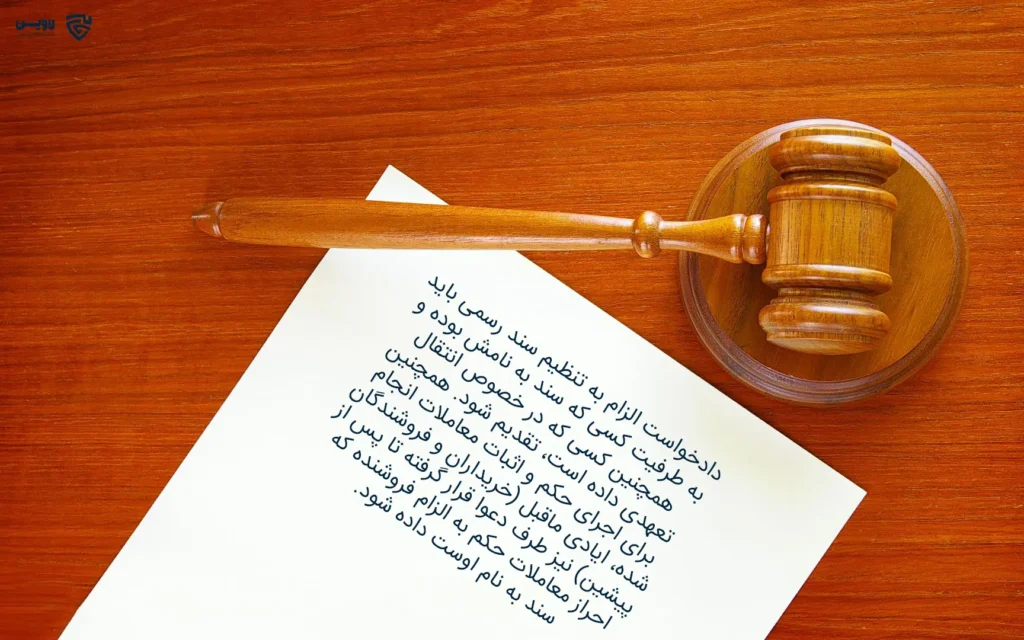 دادخواست الزام به تنظیم سند رسمی باید
به طرفیت کسی که سند به نامش بوده و
همچنین کسی که در خصوص انتقال
تعهدی داده است، تقدیم شود. همچنین
برای اجرای حکم و اثبات معاملات انجام
شده، ایادی ماقبل (خریداران و فروشندگان
پیشین) نیز طرف دعوا قرار گرفته تا پس از
احراز معاملات حکم به الزام فروشنده که
سند به نام اوست داده شود.